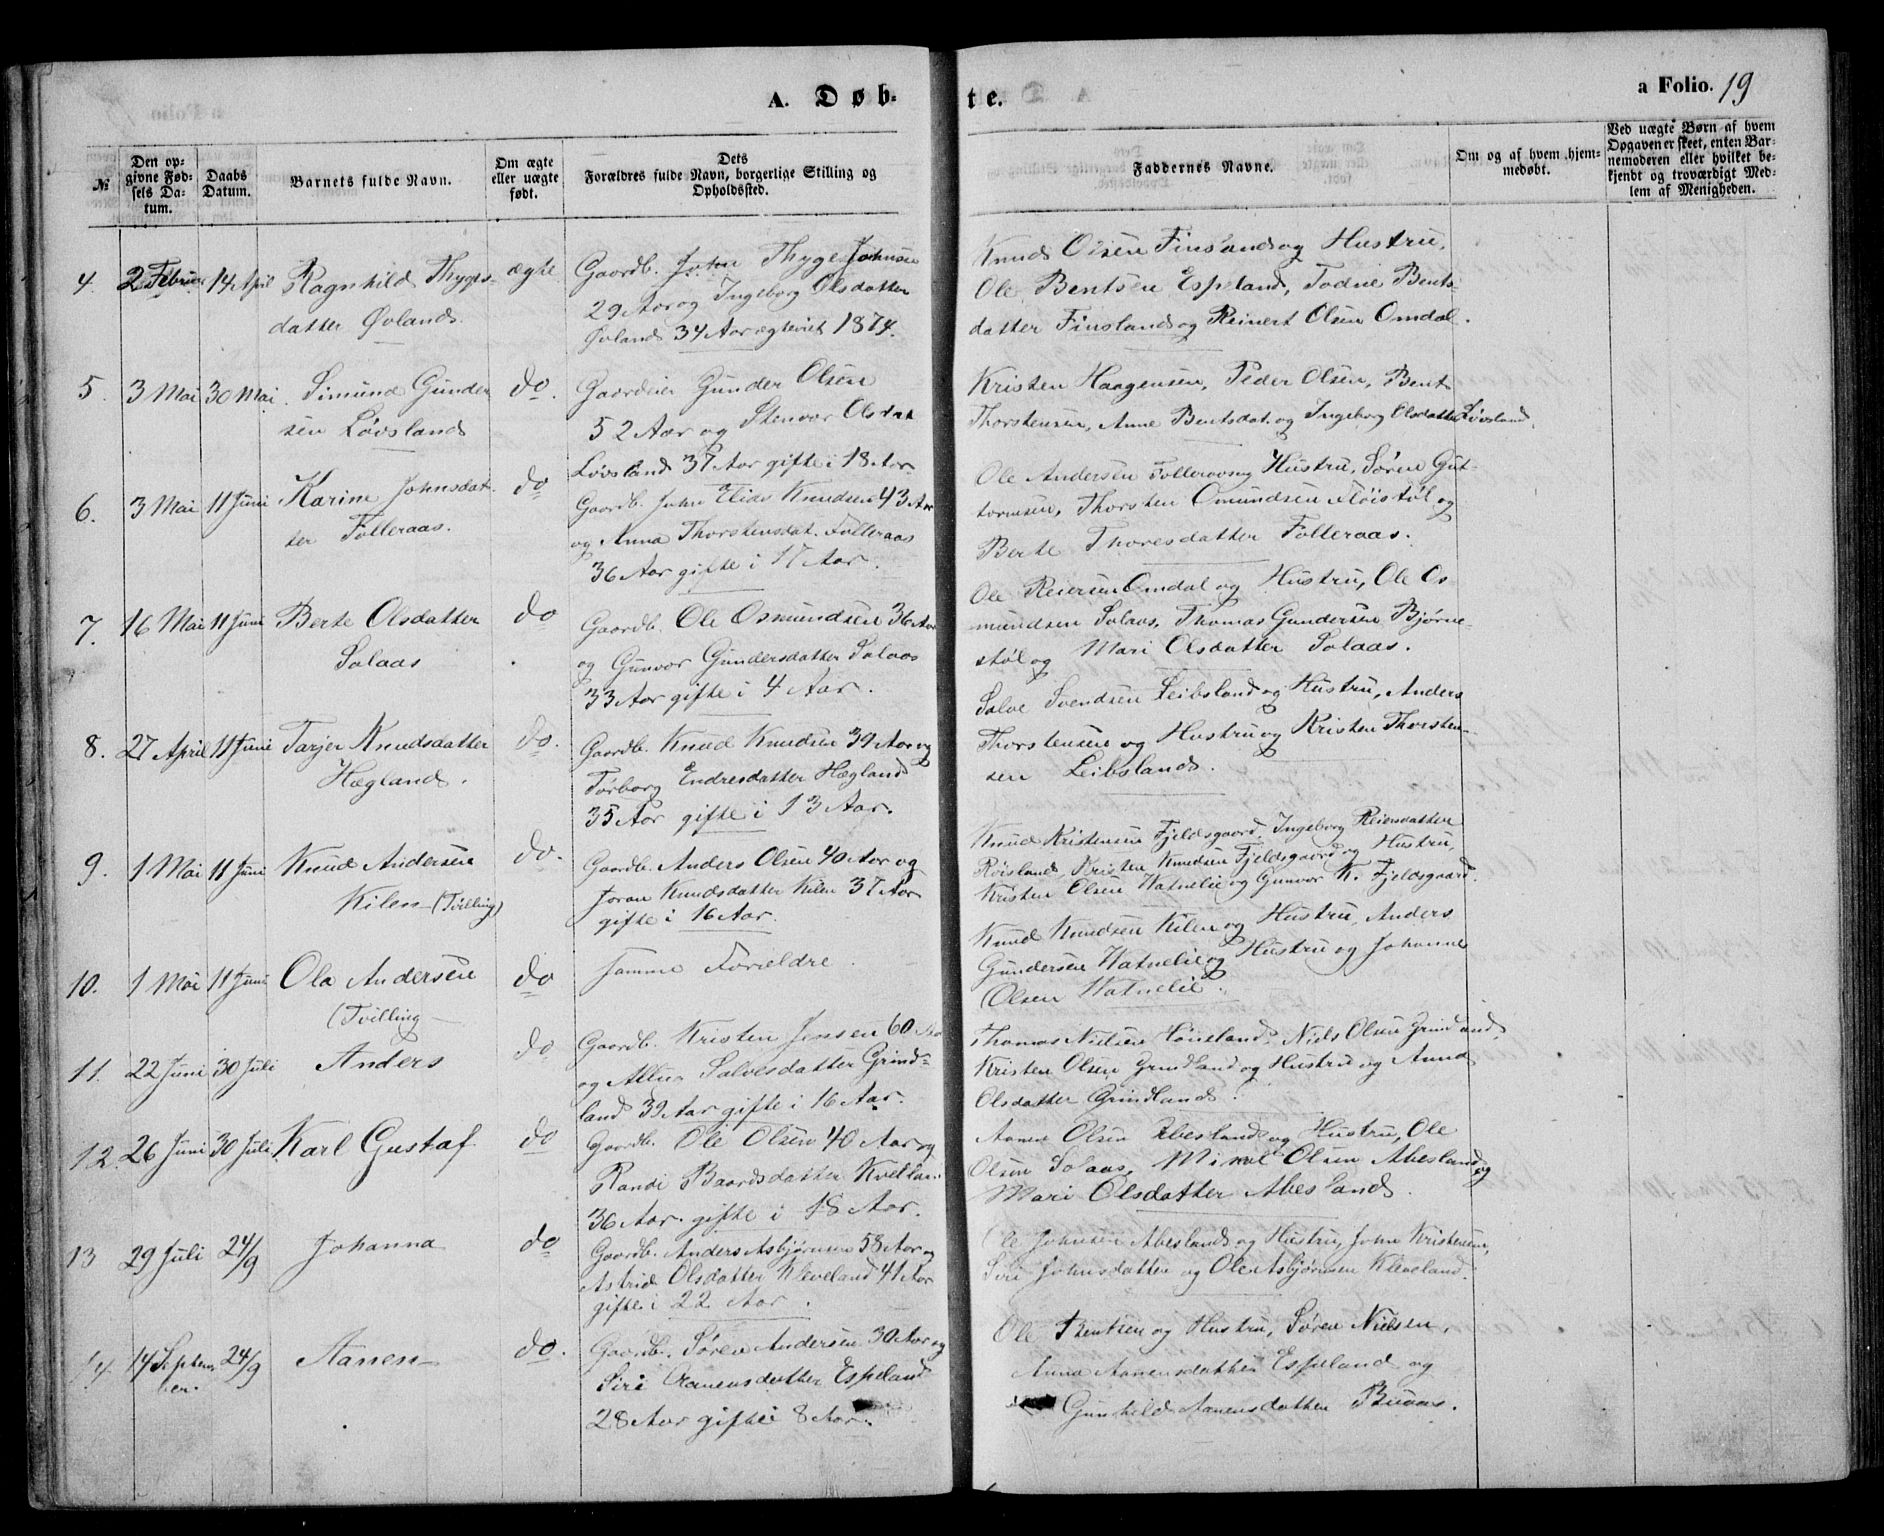 A. Døb-
te.
a Folio. 19
№
Den op-
givne Fød-
sels Da-
tum.
Daabs
Datum.
Barnets fulde Navn.
Om ægte
eller uægte
født.
Dets
Forældres fulde Navn, borgerlige Stilling og
Opholdssted.
Faddernes Navne.
Om og af hvem hjem-
medøbt.
Ved uægte Børn af hvem
Opgaven er skeet, enten Bar-
nemoderen eller hvilket be-
kjendt og troværdigt Med-
lem af Menigheden.
4. 2 Februar 14 April Ragnhild Thyges-
datter Øvland.
ægte
Gaardb. John Thyge Johnsen
29 Aar og Ingeborg Olsdatter
Øvland 34 Aar ægteviet 1874.
Knud Olsen Finsland og Hustru,
Ole Bentsen Espeland, Todne Bents-
datter Finsland og Reinert Olsen Omdal.
5. 3 Mai 30 Mai Simund Gunder
sen Løvsland
do.
Gaardeier Gunder Olsen
52 Aar og Stenvor Olsdat
Løvsland 37 Aar gifte i 18 Aar.
Kristen Haagensen, Peder Olsen, Bent
Thorstensen, Anne Bentsdat. og Ingeborg Olsdatter Løvsland.
6. 3 Mai 11 Juni Karine Johnsdat-
ter Folleraas.
do
Gaardb. John Elias Knudsen 43 Aar
og Anna Thorstensdat. Folleraas
36 Aar gifte i 17 Aar.
Ole Andersen Folleraas og Hustru, Søren Gut-
tormsen, Thorsten Omundsen Fløistøl og
Berte Thoresdatter Folleraas.
7. 16 Mai 11 Juni Berte Olsdatter
Solaas
do
Gaardb. Ole Osmundsen 36 Aar
og Gunvor Gundersdatter Solaas
33 Aar gifte i 4 Aar.
Ole Reiersen Omdal og Hustru, Ole Os-
mundsen Solaas, Thomas Gundersen Bjørne-
støl og Mari Olsdatter Solaas.
8. 27 April 11 Juni Tarjer Knudsdatter
Hægland.
do.
Gaardb. Knud Knudsen 39 Aar og
Torborg Endresdatter Hægland
35 Aar gifte i 13 Aar.
Salve Svendsen Leibsland og Hustru, Anders
Thorstensen og Hustru og Kristen Thorsten-
sen Leibsland.
9. 1 Mai 11 Juni Knud Andersen
Kilen (Tvilling)
do.
Gaardb. Anders Olsen 40 Aar og
Joran Knudsdatter Kilen 37 Aar
gifte i 16 Aar.
Knud Kristensen Fjeldsgaard, Ingeborg Reiersdatter
Røisland, Kristen Knudsen Fjeldsgaard og Hustru,
Kristen Olsen Hatnelie og Gunvor K. Fjeldsgaard.
10. 1 Mai 11 Juni Ola Andersen
(Tvilling
do
Samme Forældre.
Knud Knudsen Kilen og Hustru, Anders
Gundersen Hatnelie og Hustru og Johanne
Olsen Hatnelie.
11. 22 Juni 30 Juli Anders
do
Gaardb. Kristen Jensen 60 Aar
og Salvesdatter Grind-
land 39 Aar gifte i 16 Aar.
Thomas Nielsen Hønsland, Niels Olsen Grindland,
Kristen Olsen Grindland og Hustru og Anna
Olsdatter Grindland.
12. 26 Juni 30 Juli Karl Gustaf
do
Gaardb. Ole Olsen 40 Aar og
Randi Baardsdatter Kvellan
36 Aar. gifte i 18 Aar.
Aanen Olsen Abesland og Hustru, Ole
Olsen Solaas, Mikal Olsen Abesland og
Mari Olsdatter Abesland.
13 29 Juli 24/9 Johanna
do
Gaardb. Anders Asbjørnsen 58 Aar og
Astrid Olsdatter Kleveland 41 Aar
gifte i 22 Aar.
Ole Johnsen Abesland og Hustru, John Kristensen,
Siri Johnsdatter og Ole Asbjørnsen Kleveland.
14 14 Septem
ber. 24/9 Aanen
do.
Gaardb. Søren Andersen 30 Aar og
Siri Aanensdatter Espeland
28 Aar gifte i 8 Aar.
Ole Bentsen og Hustru, Søren Nielsen,
Anna Aanensdatter Espeland og
Gunhild Aanensdatter Buaas.